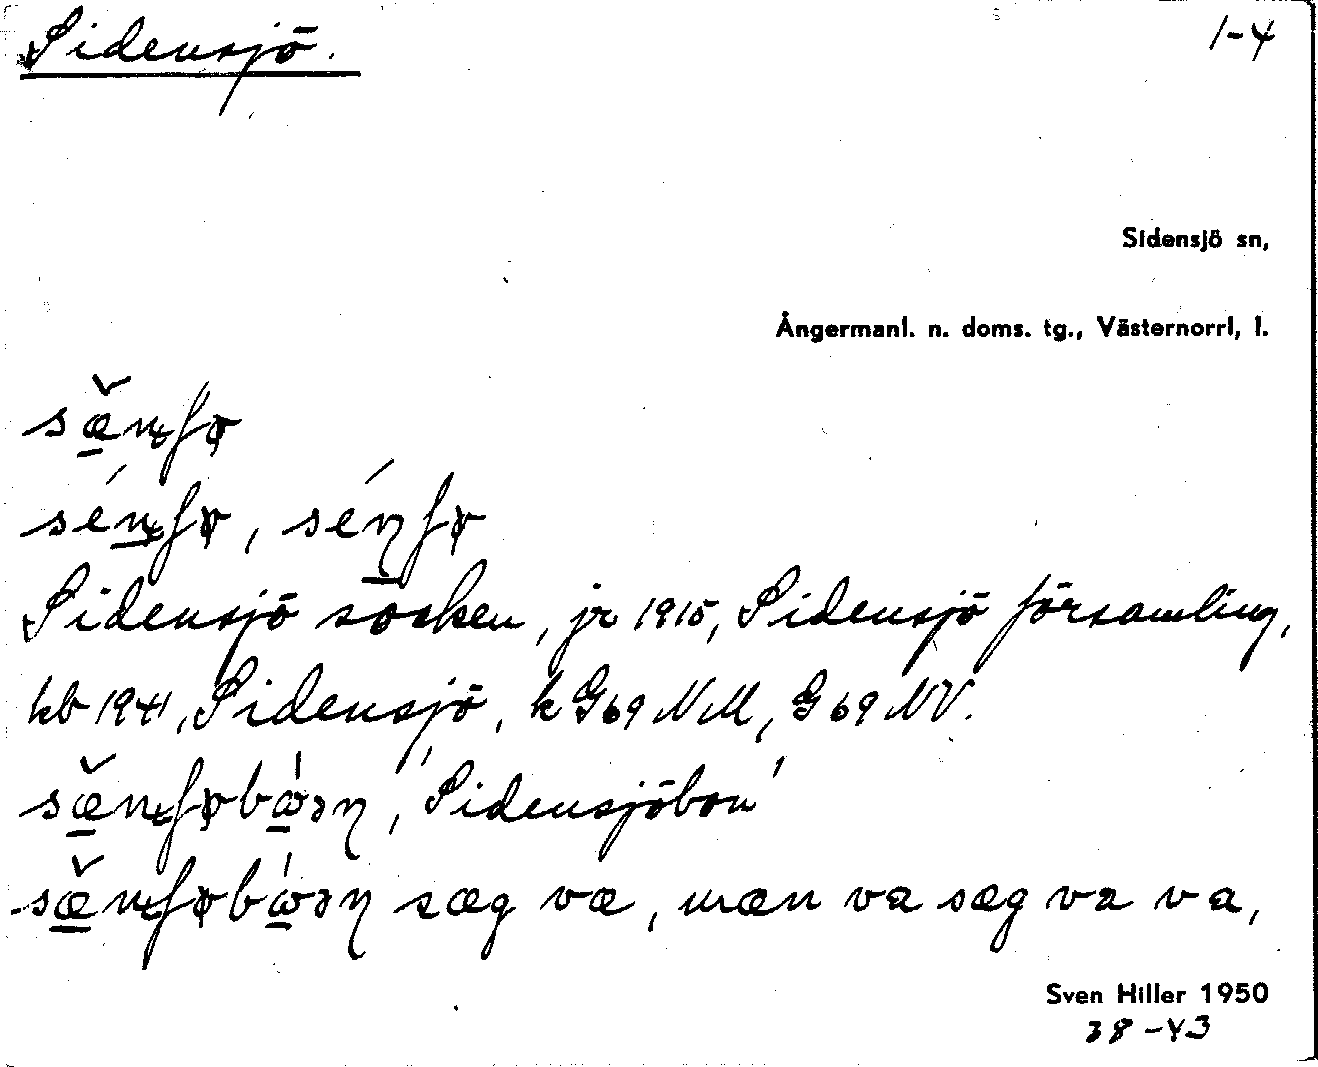 Sidensjö. 1-4
Sidensjö sn,
Ångermanl. n. doms. tg., Västernorrl, l.
Sidensjö socken, jr 1915, Sidensjö församling,
kb 1941, Sidensjö, k G69 NM, G 69 NV.
'Sidensjöbon'
sæg væ, mæn va sæg va va,
Sven Hiller 1950
38-43